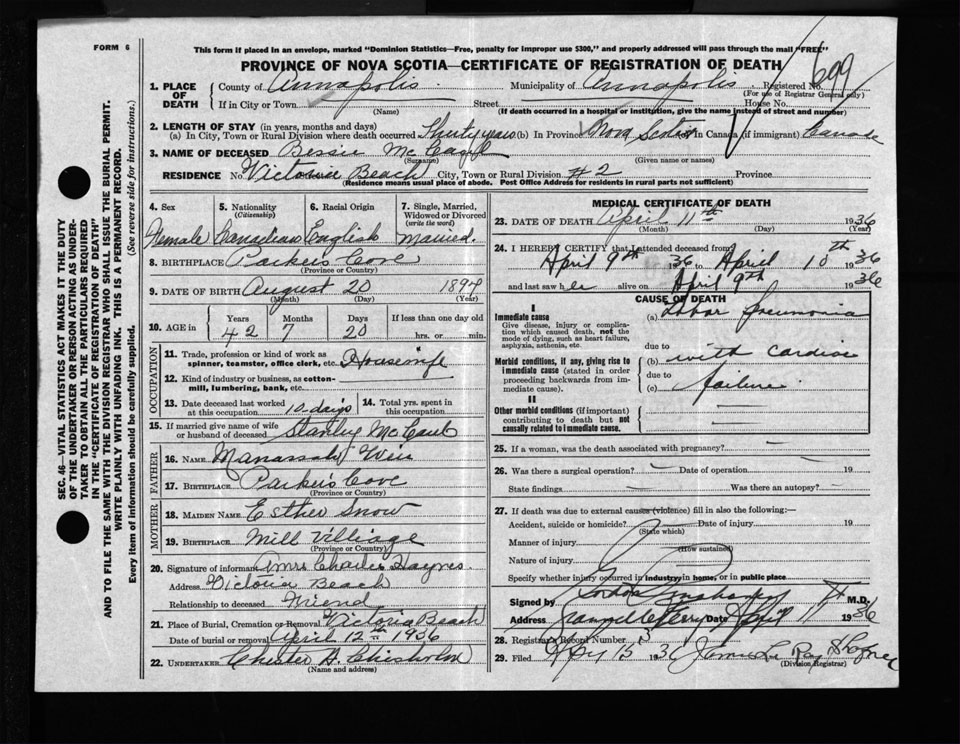 FORM 6
This form if placed in an envelope, marked "Dominion Statistics—Free, penalty for improper use $300," and properly addressed will pass through the mail "FREE"
PROVINCE OF NOVA SCOTIA—CERTIFICATE OF REGISTRATION OF DEATH
699
1. PLACE OF DEATH
County of Annapolis Municipality of Annapolis Registered No.
(For use of Registrar General only)
If in City or Town Street House No.
(Name) (If death occurred in a hospital or institution, give the name instead of street and number)
2. LENGTH OF STAY (in years, months and days)
(a) In City, Town or Rural Division where death occurred Thirty years (b) In Province Nova Scotia in Canada (if immigrant) Canada
3. NAME OF DECEASED Bessie
(Surname) (Given name or names)
RESIDENCE No. Victoria Beach City, Town or Rural Division #2 Province
(Residence means usual place of abode. Post Office Address for residents in rural parts not sufficient)
4. Sex
Female
5. Nationality
(Citizenship)
Canadian
6. Racial Origin
English
7. Single, Married, Widowed or Divorced
(write the word)
Married.
8. BIRTHPLACE Parkers Cove
(Province or Country)
9. DATE OF BIRTH August 20 189
(Month) (Day) (Year)
10. AGE in
Years Months Days If less than one day old
42 7 20 hrs. or min.
OCCUPATION
11. Trade, profession or kind of work as spinner, teamster, office clerk, etc. Housewife
12. Kind of industry or business, as cotton-mill, lumbering, bank, etc.
13. Date deceased last worked at this occupation 10 days
14. Total yrs. spent in this occupation
15. If married give name of wife or husband of deceased Stanley McCaul
FATHER
16. NAME Manassah Weir
17. BIRTHPLACE Parkers Cove
(Province or Country)
MOTHER
18. MAIDEN NAME Esther Snow
19. BIRTHPLACE Mill Villiage
(Province or Country)
20. Signature of informant Mrs Charles Haynes
Address Victoria Beach
Relationship to deceased Friend
21. Place of Burial, Cremation or Removal Victoria Beach
Date of burial or removal April 12th 1936
22. UNDERTAKER Chester A. Chisholm
(Name and address)
MEDICAL CERTIFICATE OF DEATH
23. DATE OF DEATH April 11th 1936
(Month) (Day) (Year)
24. I HEREBY CERTIFY that I attended deceased from
April 9th 36 to April 10th 1936
and last saw her alive on April 9th 1936
CAUSE OF DEATH
I
Immediate cause
Give disease, injury or complication which caused death, not the mode of dying, such as heart failure, asphyxia, asthenia, etc.
(a) Lobar Pneumonia
due to
Morbid conditions, if any, giving rise to immediate cause (stated in order proceeding backwards from immediate cause).
(b) with cardiac
due to
(c) failure
II
Other morbid conditions (if important) contributing to death but not causally related to immediate cause.
25. If a woman, was the death associated with pregnancy? —
26. Was there a surgical operation? — Date of operation — 19
State findings — Was there an autopsy? —
27. If death was due to external causes (violence) fill in also the following:—
Accident, suicide or homicide? Date of injury 19
(State which)
Manner of injury
(How sustained)
Nature of injury
Specify whether injury occurred in industry, in home, or in public place
Signed by M.D.
Address Date April 11th 1936
28. Registrars Record Number 3
29. Filed 15 1936
(Division Registrar)
SEC. 46—VITAL STATISTICS ACT MAKES IT THE DUTY
OF THE UNDERTAKER OR PERSON ACTING AS UNDER-
TAKER TO OBTAIN ALL THE PARTICULARS REQUIRED
IN THE "CERTIFICATE OF REGISTRATION OF DEATH"
AND TO FILE THE SAME WITH THE DIVISION REGISTRAR WHO SHALL ISSUE THE BURIAL PERMIT.
WRITE PLAINLY WITH UNFADING INK. THIS IS A PERMANENT RECORD.
Every item of information should be carefully supplied. (See reverse side for instructions.)